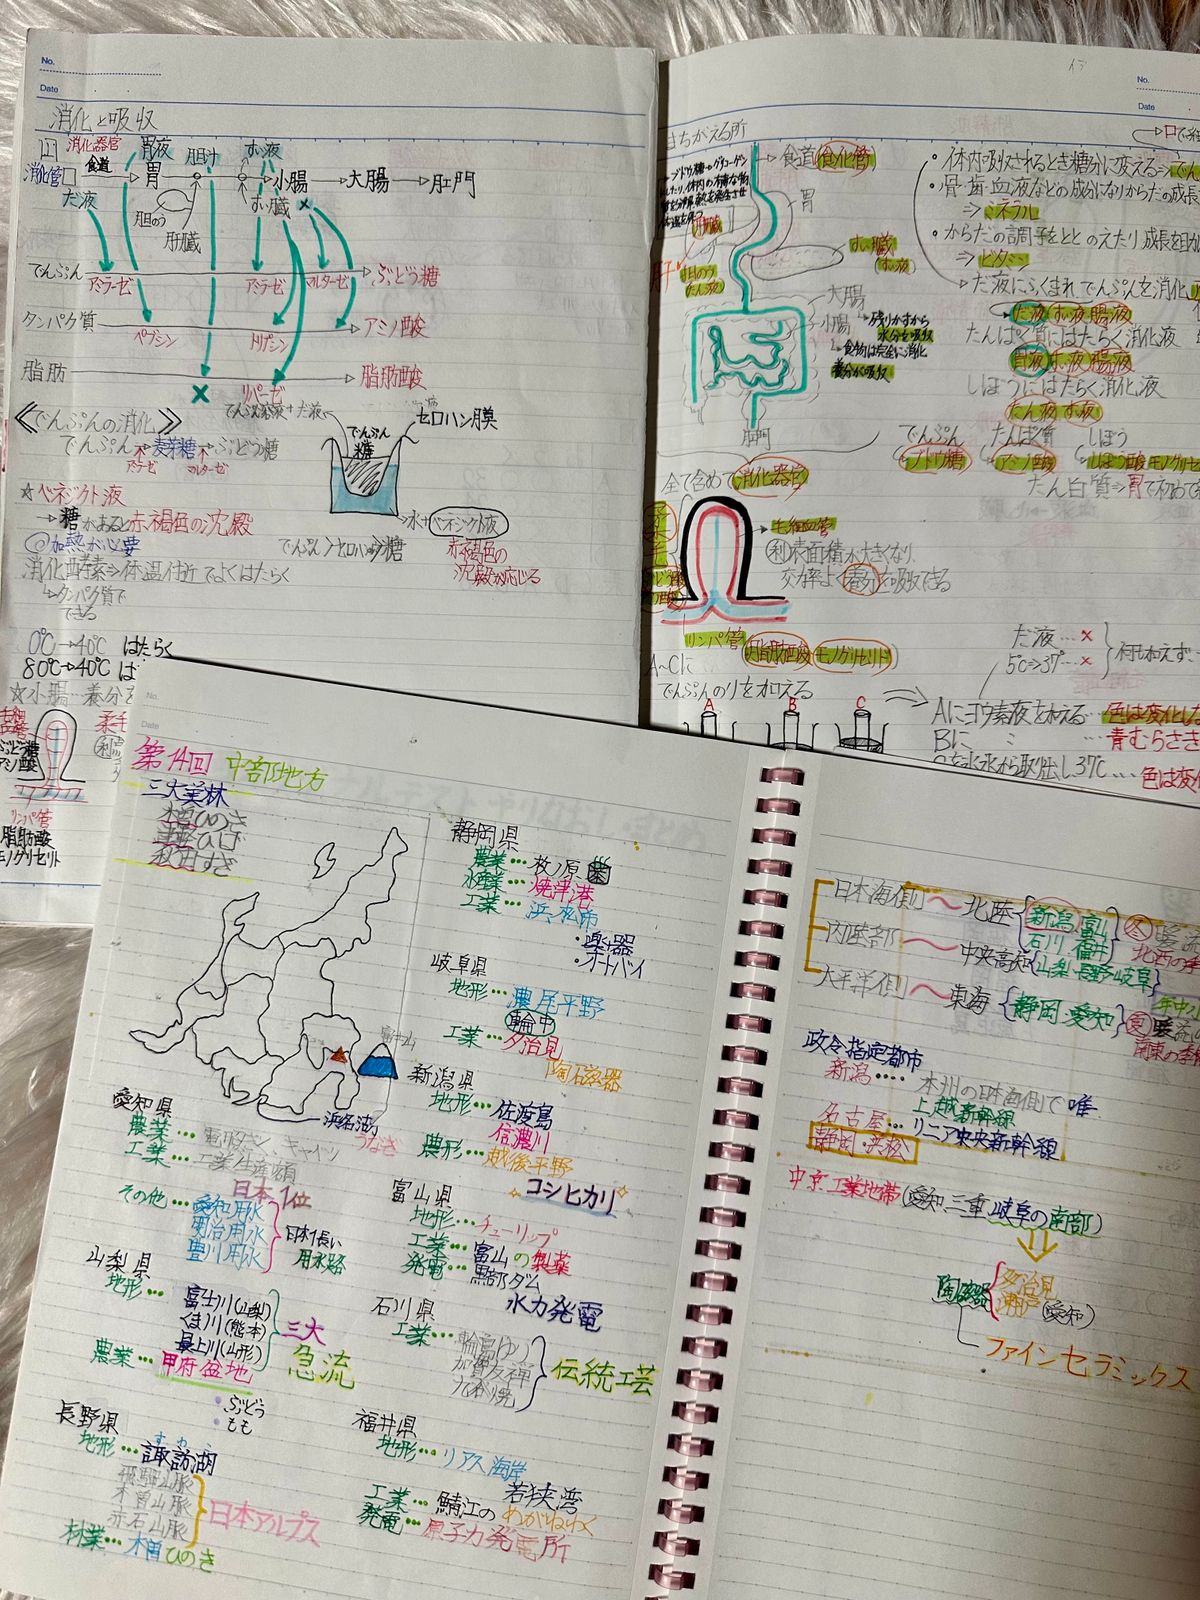 No.
Date
消化と吸収
消化器官
胃液 胆汁 すい液
消化管 食道 胃 小腸 大腸 肛門
だ液 胆のう 肝臓 すい臓 ×
でんぷん アミラーゼ アミラーゼ マルターゼ ぶどう糖
タンパク質 ペプシン トリプシン アミノ酸
脂肪 × リパーゼ 脂肪酸
《でんぷんの消化》
でんぷん→麦芽糖→ぶどう糖
アミラーゼ マルターゼ
でんぷん溶液+だ液
セロハン膜
でんぷん
糖
水+ベネジクト液
でんぷん>セロハン>糖
赤褐色の
沈殿が応じる
☆ベネジクト液
→糖があると赤褐色の沈殿
◎加熱が必要
消化酵素⇒体温付近でよくはたらく
↳タンパク質で
できる
0℃→40℃ はたらく
80℃→40℃ は
☆小腸…養分を
柔毛
ぶどう糖
アミノ酸
リンパ管
脂肪酸
モノグリセリト
No.
Date
まちがえる所
食道(食化管)
胃
肝臓
すい臓
(すい液)
胆のう
たん液
大腸
小腸
残りかすから
水分を吸収
食物は完全に消化
養分が吸収
肛門
全て含めて消化器官
・体内吸収されるとき糖分に変える⇒でん
・骨・歯・血液などの成分になりからだの成長
⇒ミネラル
・からだの調子をととのえたり成長を助
⇒ビタミン
→だ液にふくまれでんぷんを消化
だ液 すい液 腸液
たんぱく質にはたらく消化液
胃液 すい液 腸液
しぼうにはたらく消化液
たん液 すい液
でんぷん たんぱく質 しぼう
ブドウ糖 アミノ酸 しぼう酸 モノグリセ
たん白質⇒胃で初めて
毛細血管
利 表面積が大きくなり、
交率よく養分を吸収できる
リンパ管 脂肪酸 モノグリセリド
A~Cに
でんぷんのりを加える
A B C
だ液…×
5℃⇒37°…×
何も加えず
Aにヨウ素液を加える…色は変化した
Bに 〃 …青むらさき
Cを氷水から取出し37℃…色は変
No.
Date
第14回 中部地方
三大美林
木曽ひのき
津軽ひば
秋田すぎ
富士山
浜名湖
うなぎ
静岡県
農業…牧ノ原
水産業…焼津港
工業…浜松市
・楽器
・オートバイ
岐阜県
地形…濃尾平野
輪中
工業…多治見
陶磁器
新潟県
地形…佐渡島
信濃川
農形…越後平野
コシヒカリ
富山県
地形…チューリップ
工業…富山の製薬
発電…黒部ダム
水力発電
石川県
工業…輪島ぬり
加賀友禅
九谷焼
伝統工芸
福井県
地形…リアス海岸
若狭湾
工業…鯖江のめがねわく
発電…原子力発電所
愛知県
農業…電照ギク、キャベツ
工業…工業生産額
日本1位
その他…愛知用水
明治用水
豊川用水
日本1長い
用水路
山梨県
地形…富士川(山梨)
くま川(熊本)
最上川(山形)
三大
急流
農業…甲府盆地
・ぶどう
・もも
長野県
すわこ
地形…諏訪湖
飛騨山脈
木曽山脈
赤石山脈
日本アルプス
材業…木曽ひのき
日本海側~北陸{新潟、富山
石川、福井}冬 暖流
北西の季
内陸部~中央高知{山梨・長野・岐阜}
太平洋側~東海{静岡・愛知}夏 暖流
南東の季節
政令指定都市
新潟…本州の日本海側で唯一
上越新幹線
名古屋…リニア中央新幹線
静岡・浜松
中京工業地帯(愛知、三重、岐阜の南部)
陶磁器{多治見
瀬戸(愛知)
ファインセラミックス